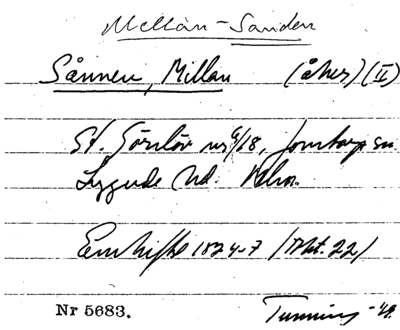 Mellan-Sanden
Sånnen, Millan (åker) (II)
St. Görslöv nr 9/18, Jonstorp sn
Luggude hd. Mlm.
Enskifte 1824-7 /Akt. 22/
Nr 5683. Tunning -49.